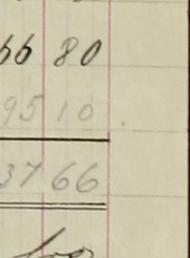 66 80
95 10
37 66